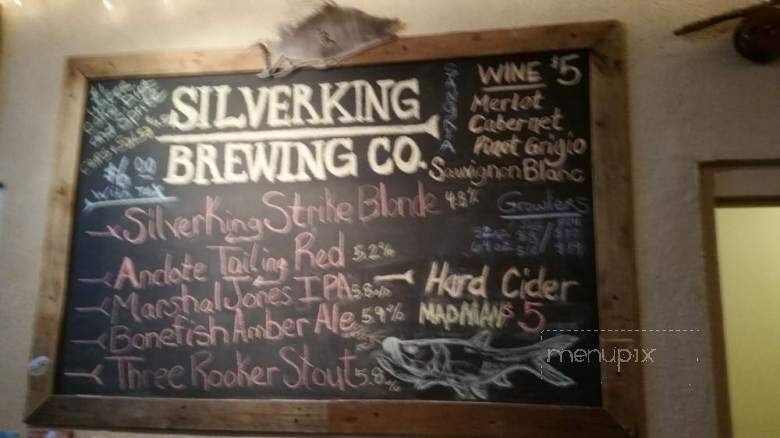 SILVERKING
BREWING CO.
WINE $5
Merlot
Cabernet
Pinot Grigio
Sauvignon Blanc
Growlers
32oz
64oz
Silverking Strike Blonde 4.5%
Anclote Tailing Red 5.2%
Marshal Jones IPA 5.8%
Bonefish Amber Ale 5.9%
Three Rooker Stout 5.8%
Hard Cider
MADMAN $5
menupix